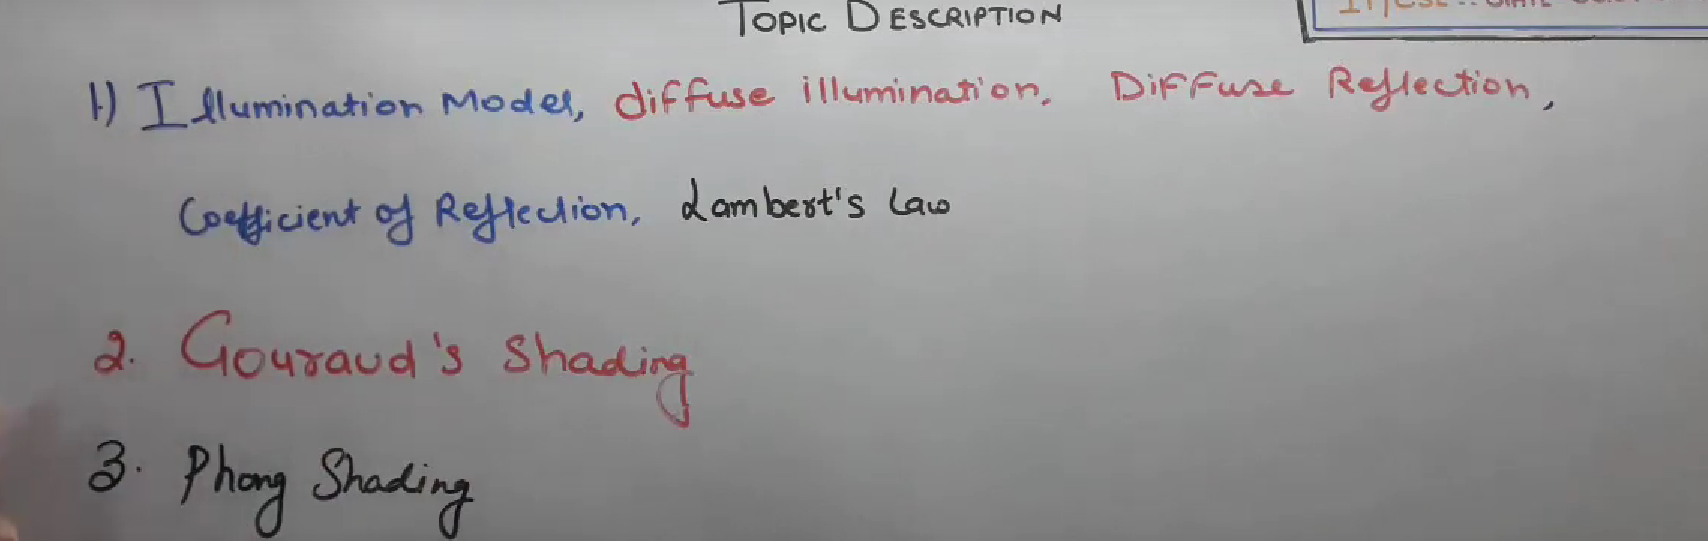 TOPIC DESCRIPTION
1) Illumination Model, diffuse illumination, Diffuse Reflection,
Coefficient of Reflection, Lambert's Law
2. Gouraud's Shading
3. Phong Shading